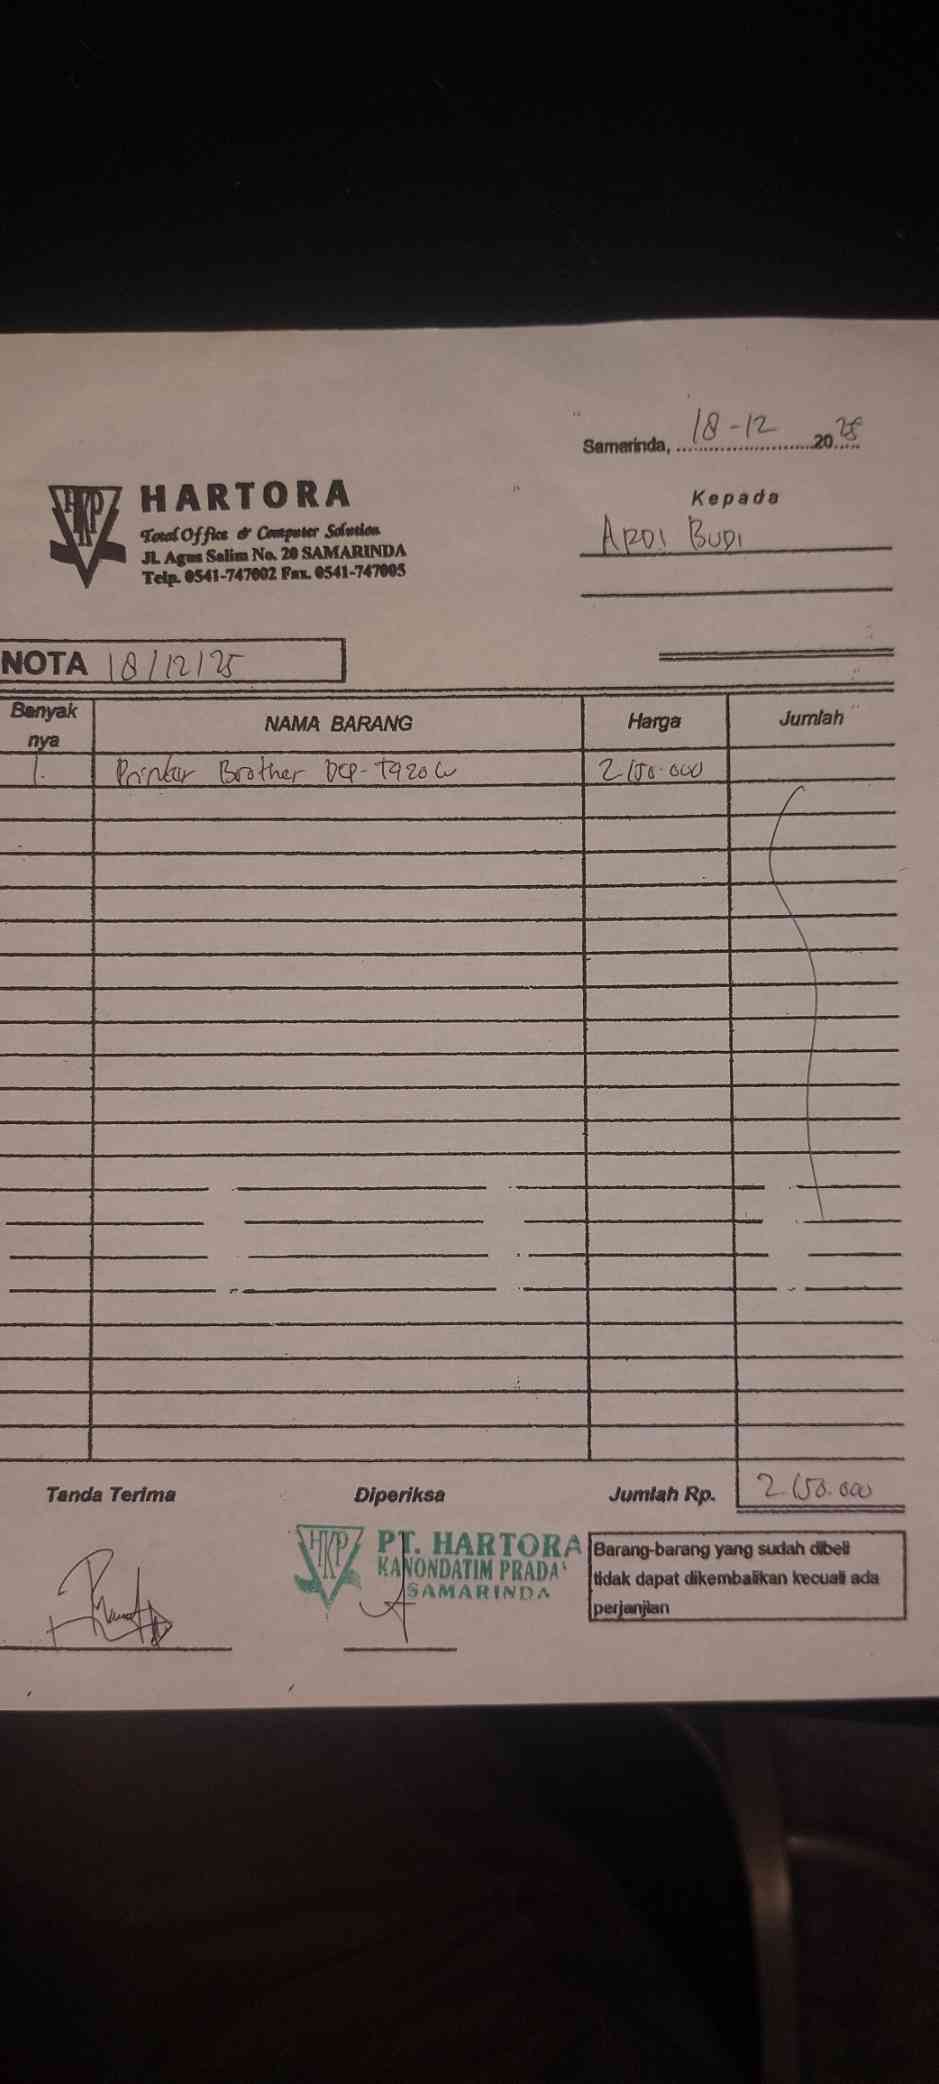 Samarinda, 18-12 2025
Kepada
ARDI BUDI
HKP
HARTORA
Total Office & Computer Solution
Jl. Agus Salim No. 20 SAMARINDA
Telp. 0541-747002 Fax. 0541-747005
NOTA 18/12/25
Banyak nya NAMA BARANG Harga Jumlah
1. Printer Brother DCP-T920W 2.150.000
Tanda Terima Diperiksa Jumlah Rp. 2.150.000
HKP PT. HARTORA
KANONDATIM PRADA
SAMARINDA
Barang-barang yang sudah dibeli
tidak dapat dikembalikan kecuali ada
perjanjian